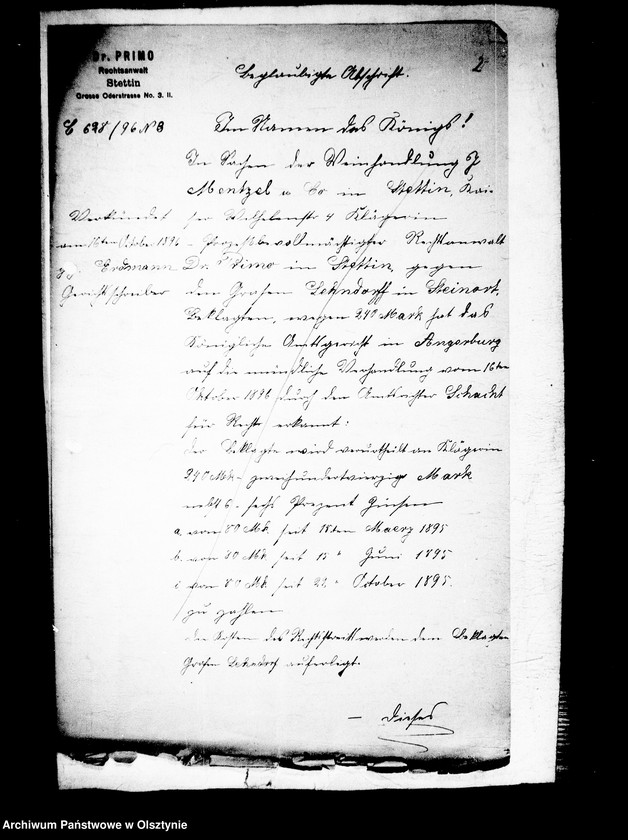 Dr. PRIMO
Rechtsanwalt
Stettin
Grosse Oderstrasse No. 3. II.
2
Beglaubigte Abschrift.
C 628/96 No 3
Im Namen des Königs!
In Sachen der Weinhandlung J
Mentzel u Co in Stettin, Kai-
ser Wilhelmstr 4 Klägerin
Verkündet
am 16ten October 1896
Erdmann
Gerichtsschreiber
– Prozeßbevollmächtigter Rechtsanwalt
Dr. Primo in Stettin, gegen
den Grafen Lehndorff in Steinort,
Beklagten, wegen 240 Mark hat das
Königliche Amtsgericht in Angerburg
auf die mündliche Verhandlung vom 16ten
Oktober 1896 durch den Amtsrichter Schacht
für Recht erkannt:
der Beklagte wird verurtheilt an Klägerin
240 Mk – zweihundertvierzig Mark
nebst 6 – sechs Prozent Zinsen
a. von 80 Mk. seit 15ten Maerz 1895
b. von 80 Mk seit 15 " Juni 1895
c von 80 Mk seit 22 " October 1895.
zu zahlen
die Kosten des Rechtsstreits werden dem Beklagten
Grafen Lehndorf auferlegt.
– Dieses
Archiwum Państwowe w Olsztynie